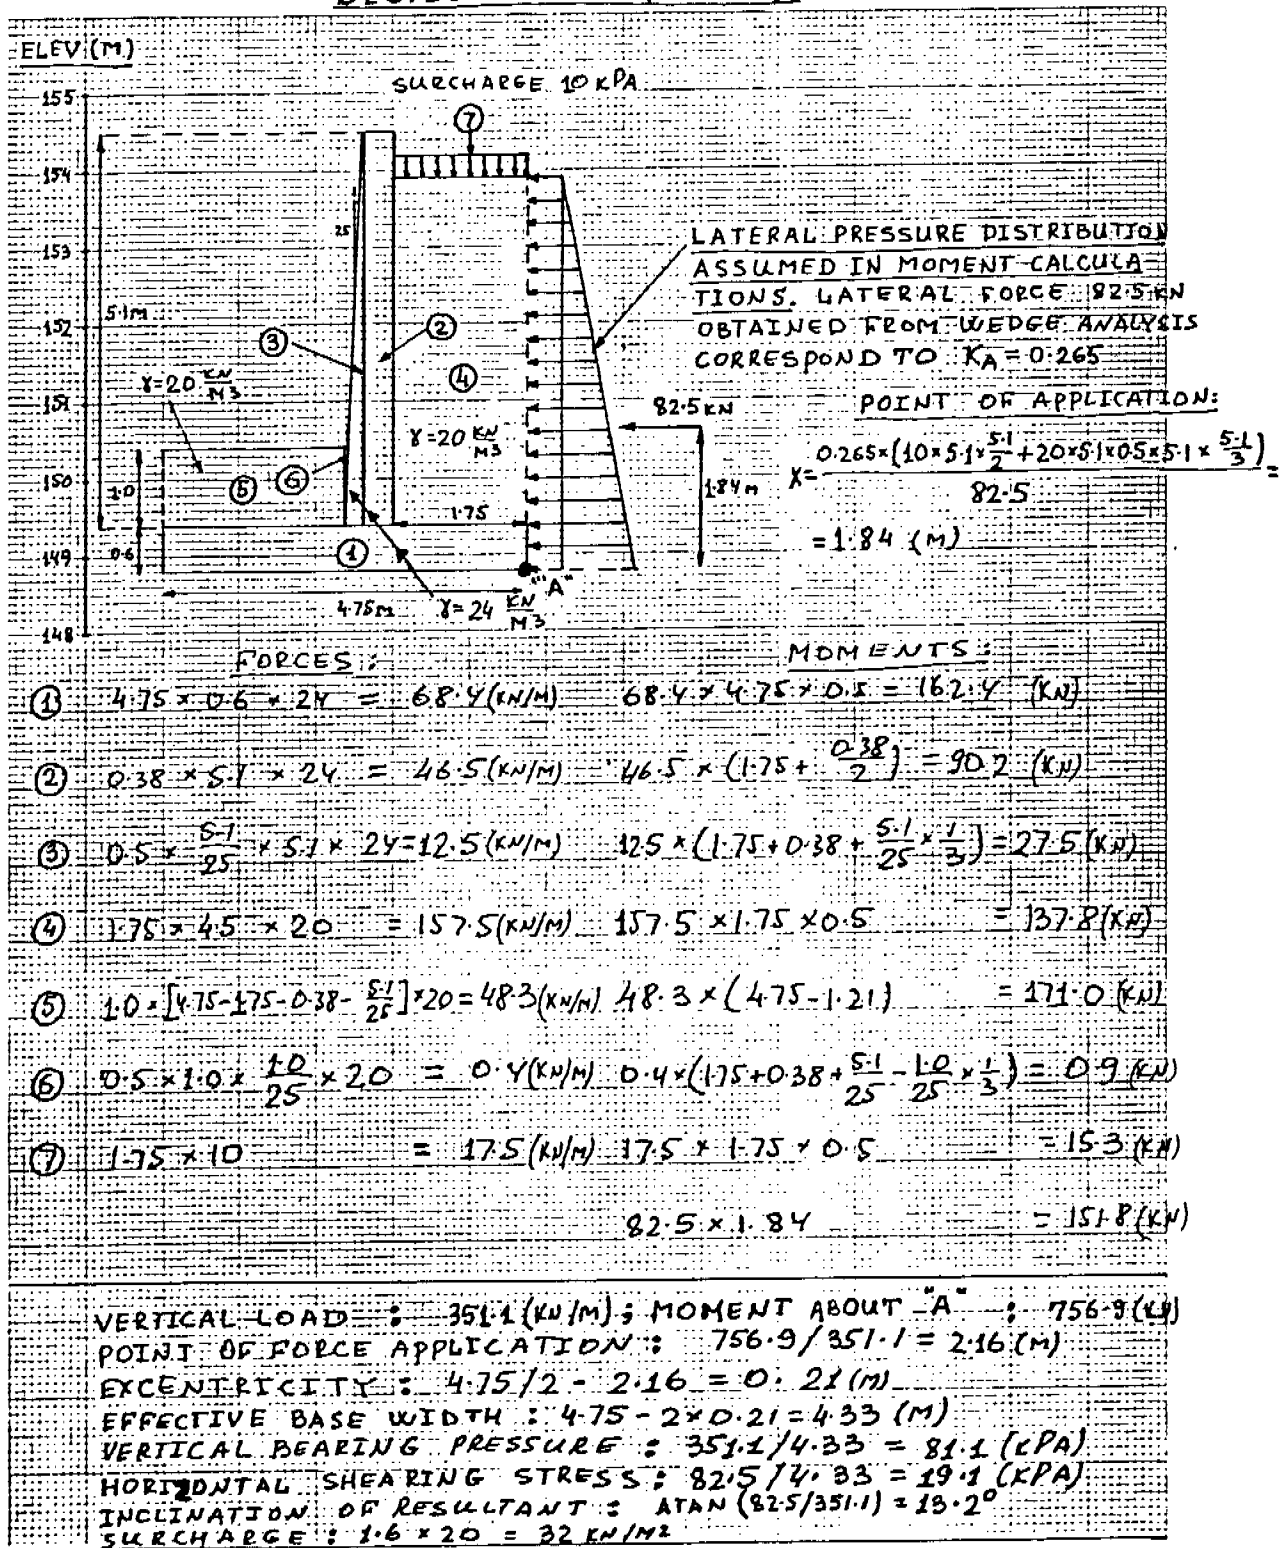 ELEV (M)
SURCHARGE 10 KPA
⑦
155
154
153
152
151
150
149
148
25
5.1m
③
②
④
LATERAL PRESSURE DISTRIBUTION
ASSUMED IN MOMENT CALCULA-
TIONS. LATERAL FORCE 82.5 KN
OBTAINED FROM WEDGE ANALYSIS
CORRESPOND TO KA = 0.265
POINT OF APPLICATION:
X = 0.265×(10×5.1×5.1/2 + 20×5.1×0.5×5.1×5.1/3) / 82.5 =
= 1.84 (M)
γ=20 KN/M3
82.5 KN
γ=20 KN/M3
1.84m
⑤
⑥
1.0
1.75
0.6
①
"A"
4.75m
γ=24 KN/M3
FORCES:
MOMENTS:
① 4.75 × 0.6 × 24 = 68.4 (KN/M) 68.4 × 4.75 × 0.5 = 162.4 (KN)
② 0.38 × 5.1 × 24 = 46.5 (KN/M) 46.5 × (1.75 + 0.38/2) = 90.2 (KN)
③ 0.5 × 5.1/25 × 5.1 × 24 = 12.5 (KN/M) 12.5 × (1.75 + 0.38 + 5.1/25 × 1/3) = 27.5 (KN)
④ 1.75 × 4.5 × 20 = 157.5 (KN/M) 157.5 × 1.75 × 0.5 = 137.8 (KN)
⑤ 1.0 × [4.75-1.75-0.38-5.1/25] × 20 = 48.3 (KN/M) 48.3 × (4.75-1.21) = 171.0 (KN)
⑥ 0.5 × 1.0 × 1.0/25 × 20 = 0.4 (KN/M) 0.4 × (1.75 + 0.38 + 5.1/25 - 1.0/25 × 1/3) = 0.9 (KN)
⑦ 1.75 × 10 = 17.5 (KN/M) 17.5 × 1.75 × 0.5 = 15.3 (KN)
82.5 × 1.84 = 151.8 (KN)
VERTICAL LOAD : 351.1 (KN/M); MOMENT ABOUT "A" : 756.9 (KN)
POINT OF FORCE APPLICATION : 756.9/351.1 = 2.16 (M)
EXCENTRICITY : 4.75/2 - 2.16 = 0.21 (M)
EFFECTIVE BASE WIDTH : 4.75 - 2×0.21 = 4.33 (M)
VERTICAL BEARING PRESSURE : 351.1/4.33 = 81.1 (KPA)
HORIZONTAL SHEARING STRESS : 82.5/4.33 = 19.1 (KPA)
INCLINATION OF RESULTANT : ATAN (82.5/351.1) = 13.2°
SURCHARGE : 1.6 × 20 = 32 KN/M2